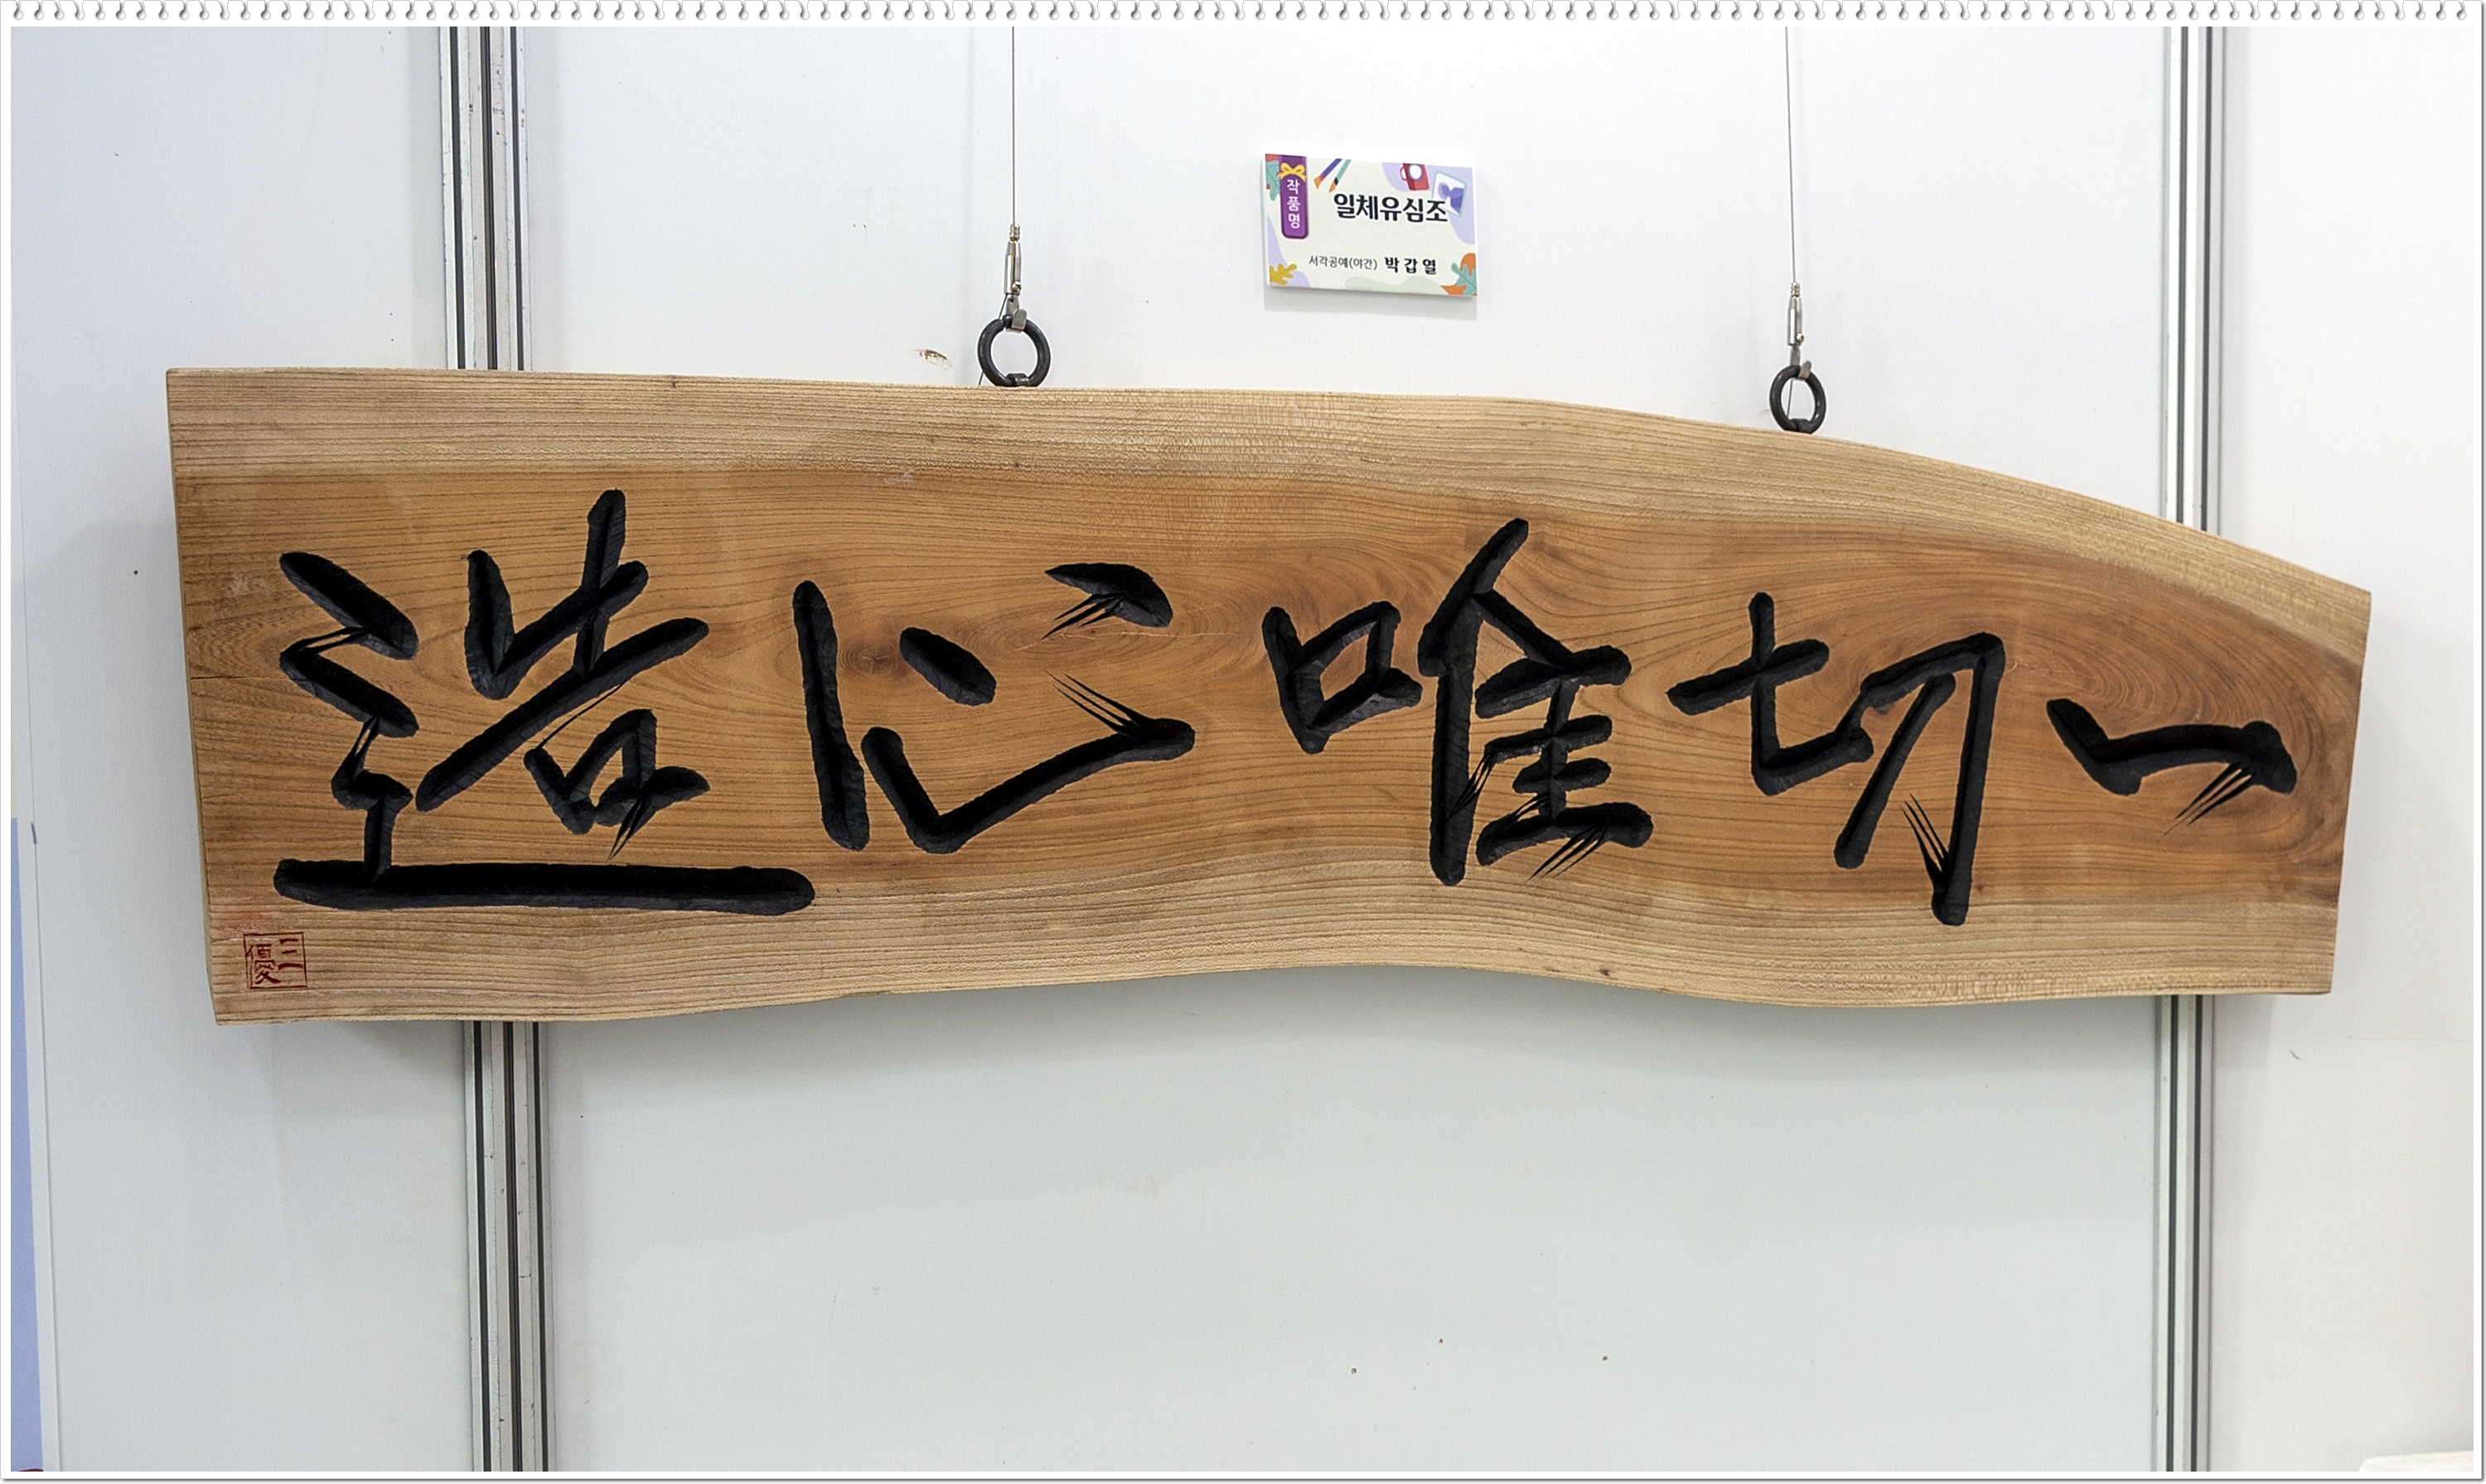 작품명
일체유심조
서각공예(야간) 박갑열
一切唯心造
三優